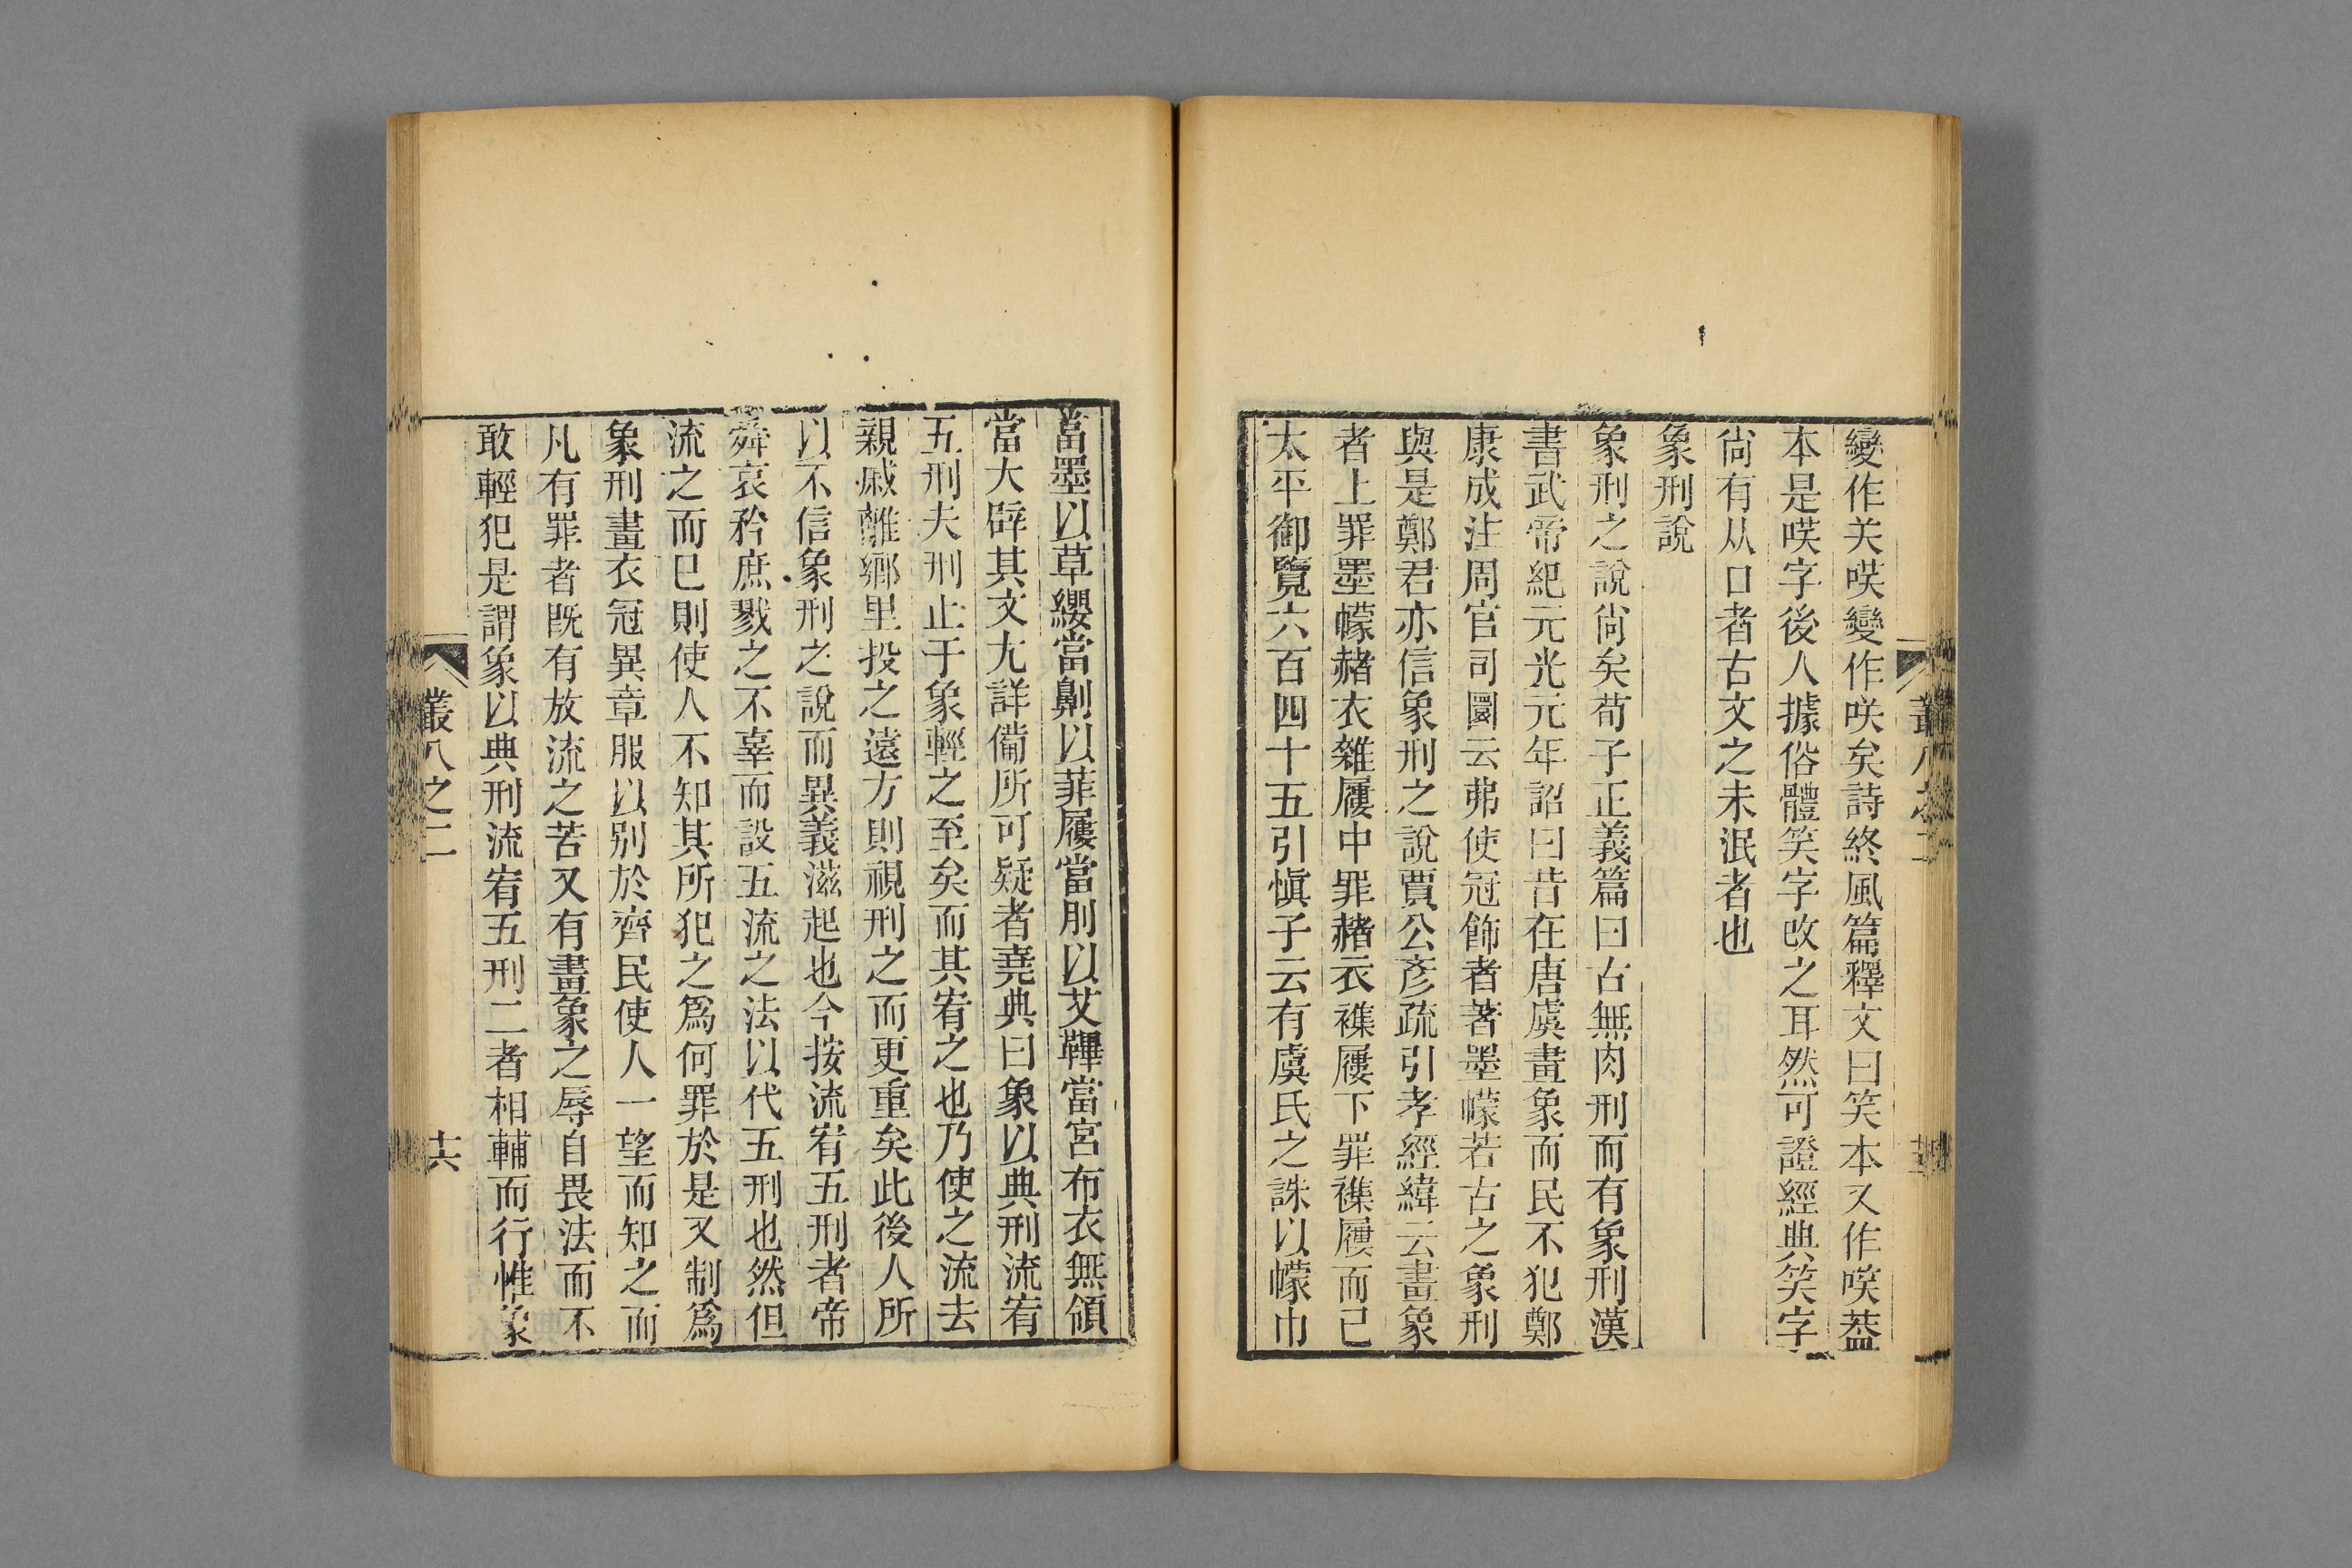 變作关㗛變作咲矣詩終風篇釋文曰笑本又作㗛葢
本是㗛字後人據俗體笑字改之耳然可證經典笑字
尙有从口者古文之未泯者也
象刑說
象刑之說尙矣荀子正義篇曰古無肉刑而有象刑漢
書武帝紀元光元年詔曰昔在唐虞畫象而民不犯鄭
康成注周官司圜云弗使冠飾者著墨幪若古之象刑
與是鄭君亦信象刑之說賈公彥疏引孝經緯云畫象
者上罪墨幪赭衣雜屨中罪赭衣襍屨下罪襍屨而已
太平御覽六百四十五引愼子云有虞氏之誅以幪巾
當墨以草纓當劓以菲屨當刖以艾鞸當宮布衣無領
當大辟其文尢詳備所可疑者堯典曰象以典刑流宥
五刑夫刑止于象輕之至矣而其宥之也乃使之流去
親戚離鄉里投之遠方則視刑之而更重矣此後人所
以不信象刑之說而異義滋起也今按流宥五刑者帝
舜哀矜庶戮之不辜而設五流之法以代五刑也然但
流之而已則使人不知其所犯之爲何罪於是又制爲
象刑畫衣冠異章服以别於齊民使人一望而知之而
凡有罪者旣有放流之苦又有畫象之辱自畏法而不
敢輕犯是謂象以典刑流宥五刑二者相輔而行惟象
叢八之二
十六